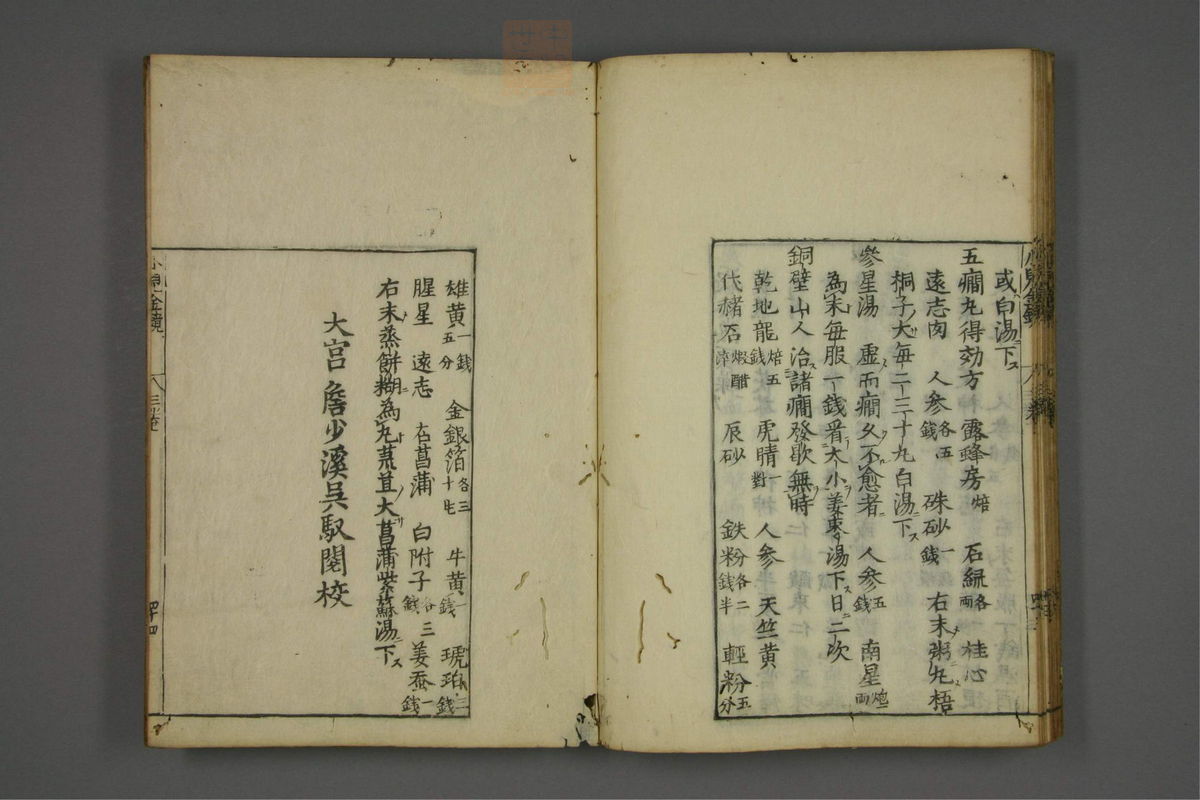 或白湯下ス
五癎丸得効方 露蜂房焙 石絸各両 桂心
遠志肉 人参各五銭 硃砂一銭 右末粥丸梧
桐子大毎二三十九白湯下ス
參星湯 虚而癎久不愈者 人参五銭 南星炮両
為末毎服一銭 大小姜枣湯下ス日二次
銅壁山人 治諸癎發歇無時
乾地龍焙五銭 虎睛一對 人参 天竺黄
代赭石煅醋淬 辰砂 鉄粉各二銭半 輕粉五分
雄黄一銭五分 金銀箔各三十片 牛黄一銭 琥珀二銭
腥星 遠志 石菖蒲 白附子各三銭 姜蚕一銭
右末蒸餅糊為丸芡豆大菖蒲紫蘇湯下ス
大宮 詹少溪呉馭閲校
小児金鏡
八三巻
四十四